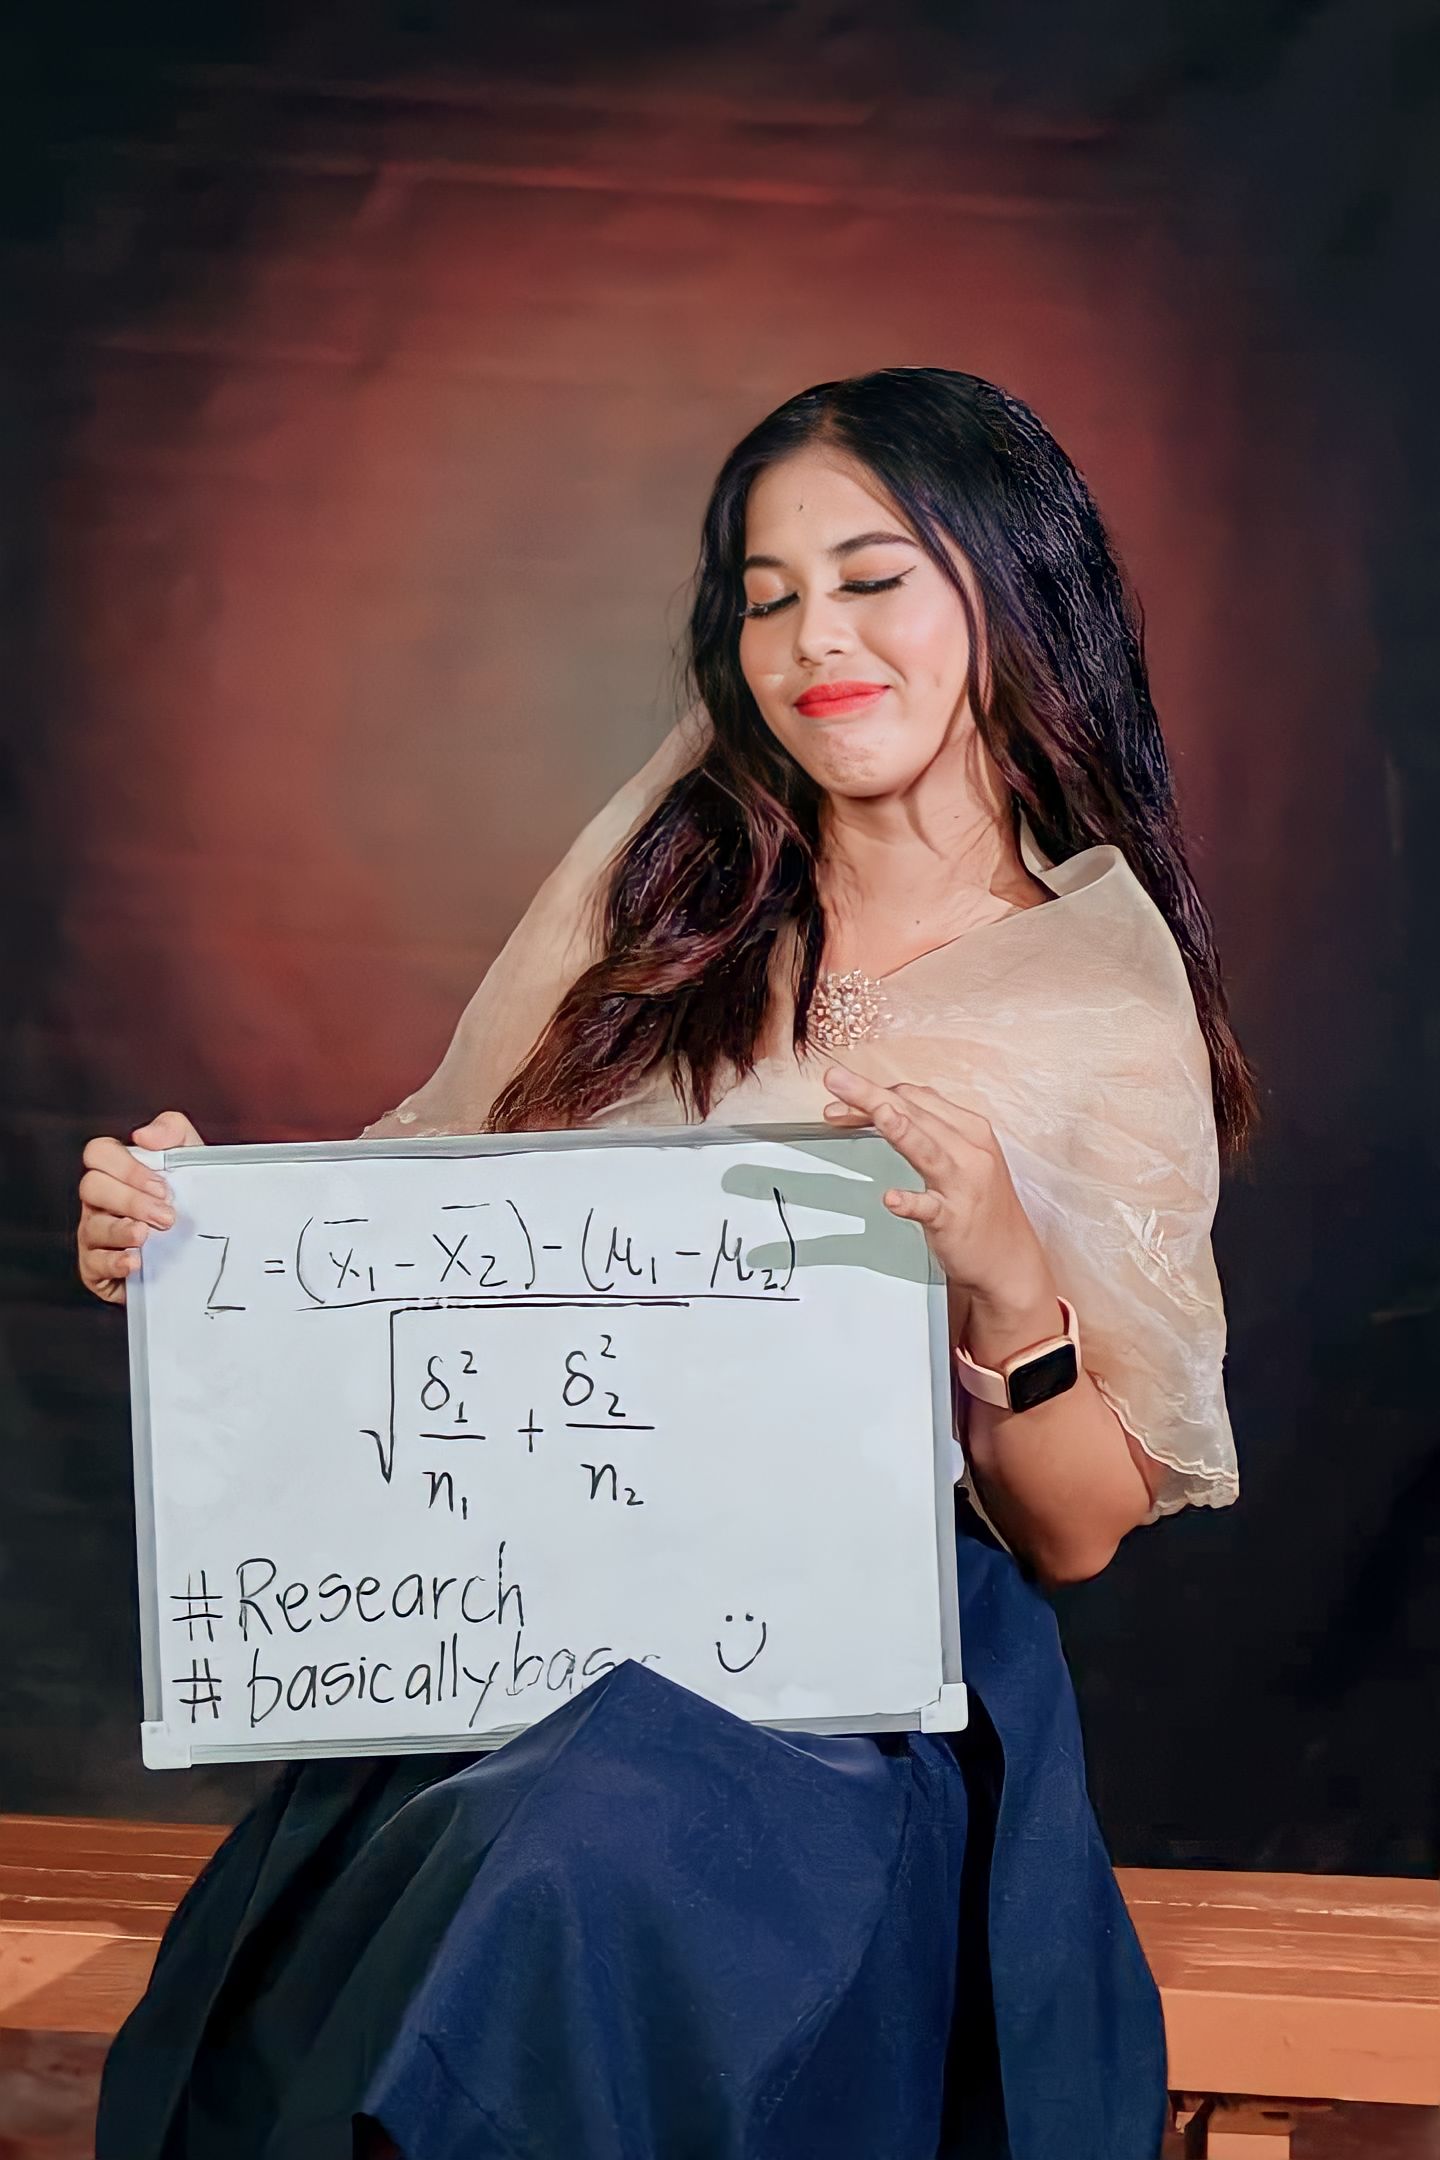 Z = (x̄₁ - x̄₂) - (μ₁ - μ₂)
√ δ₁² / n₁ + δ₂² / n₂
#Research
#basicallybas :)